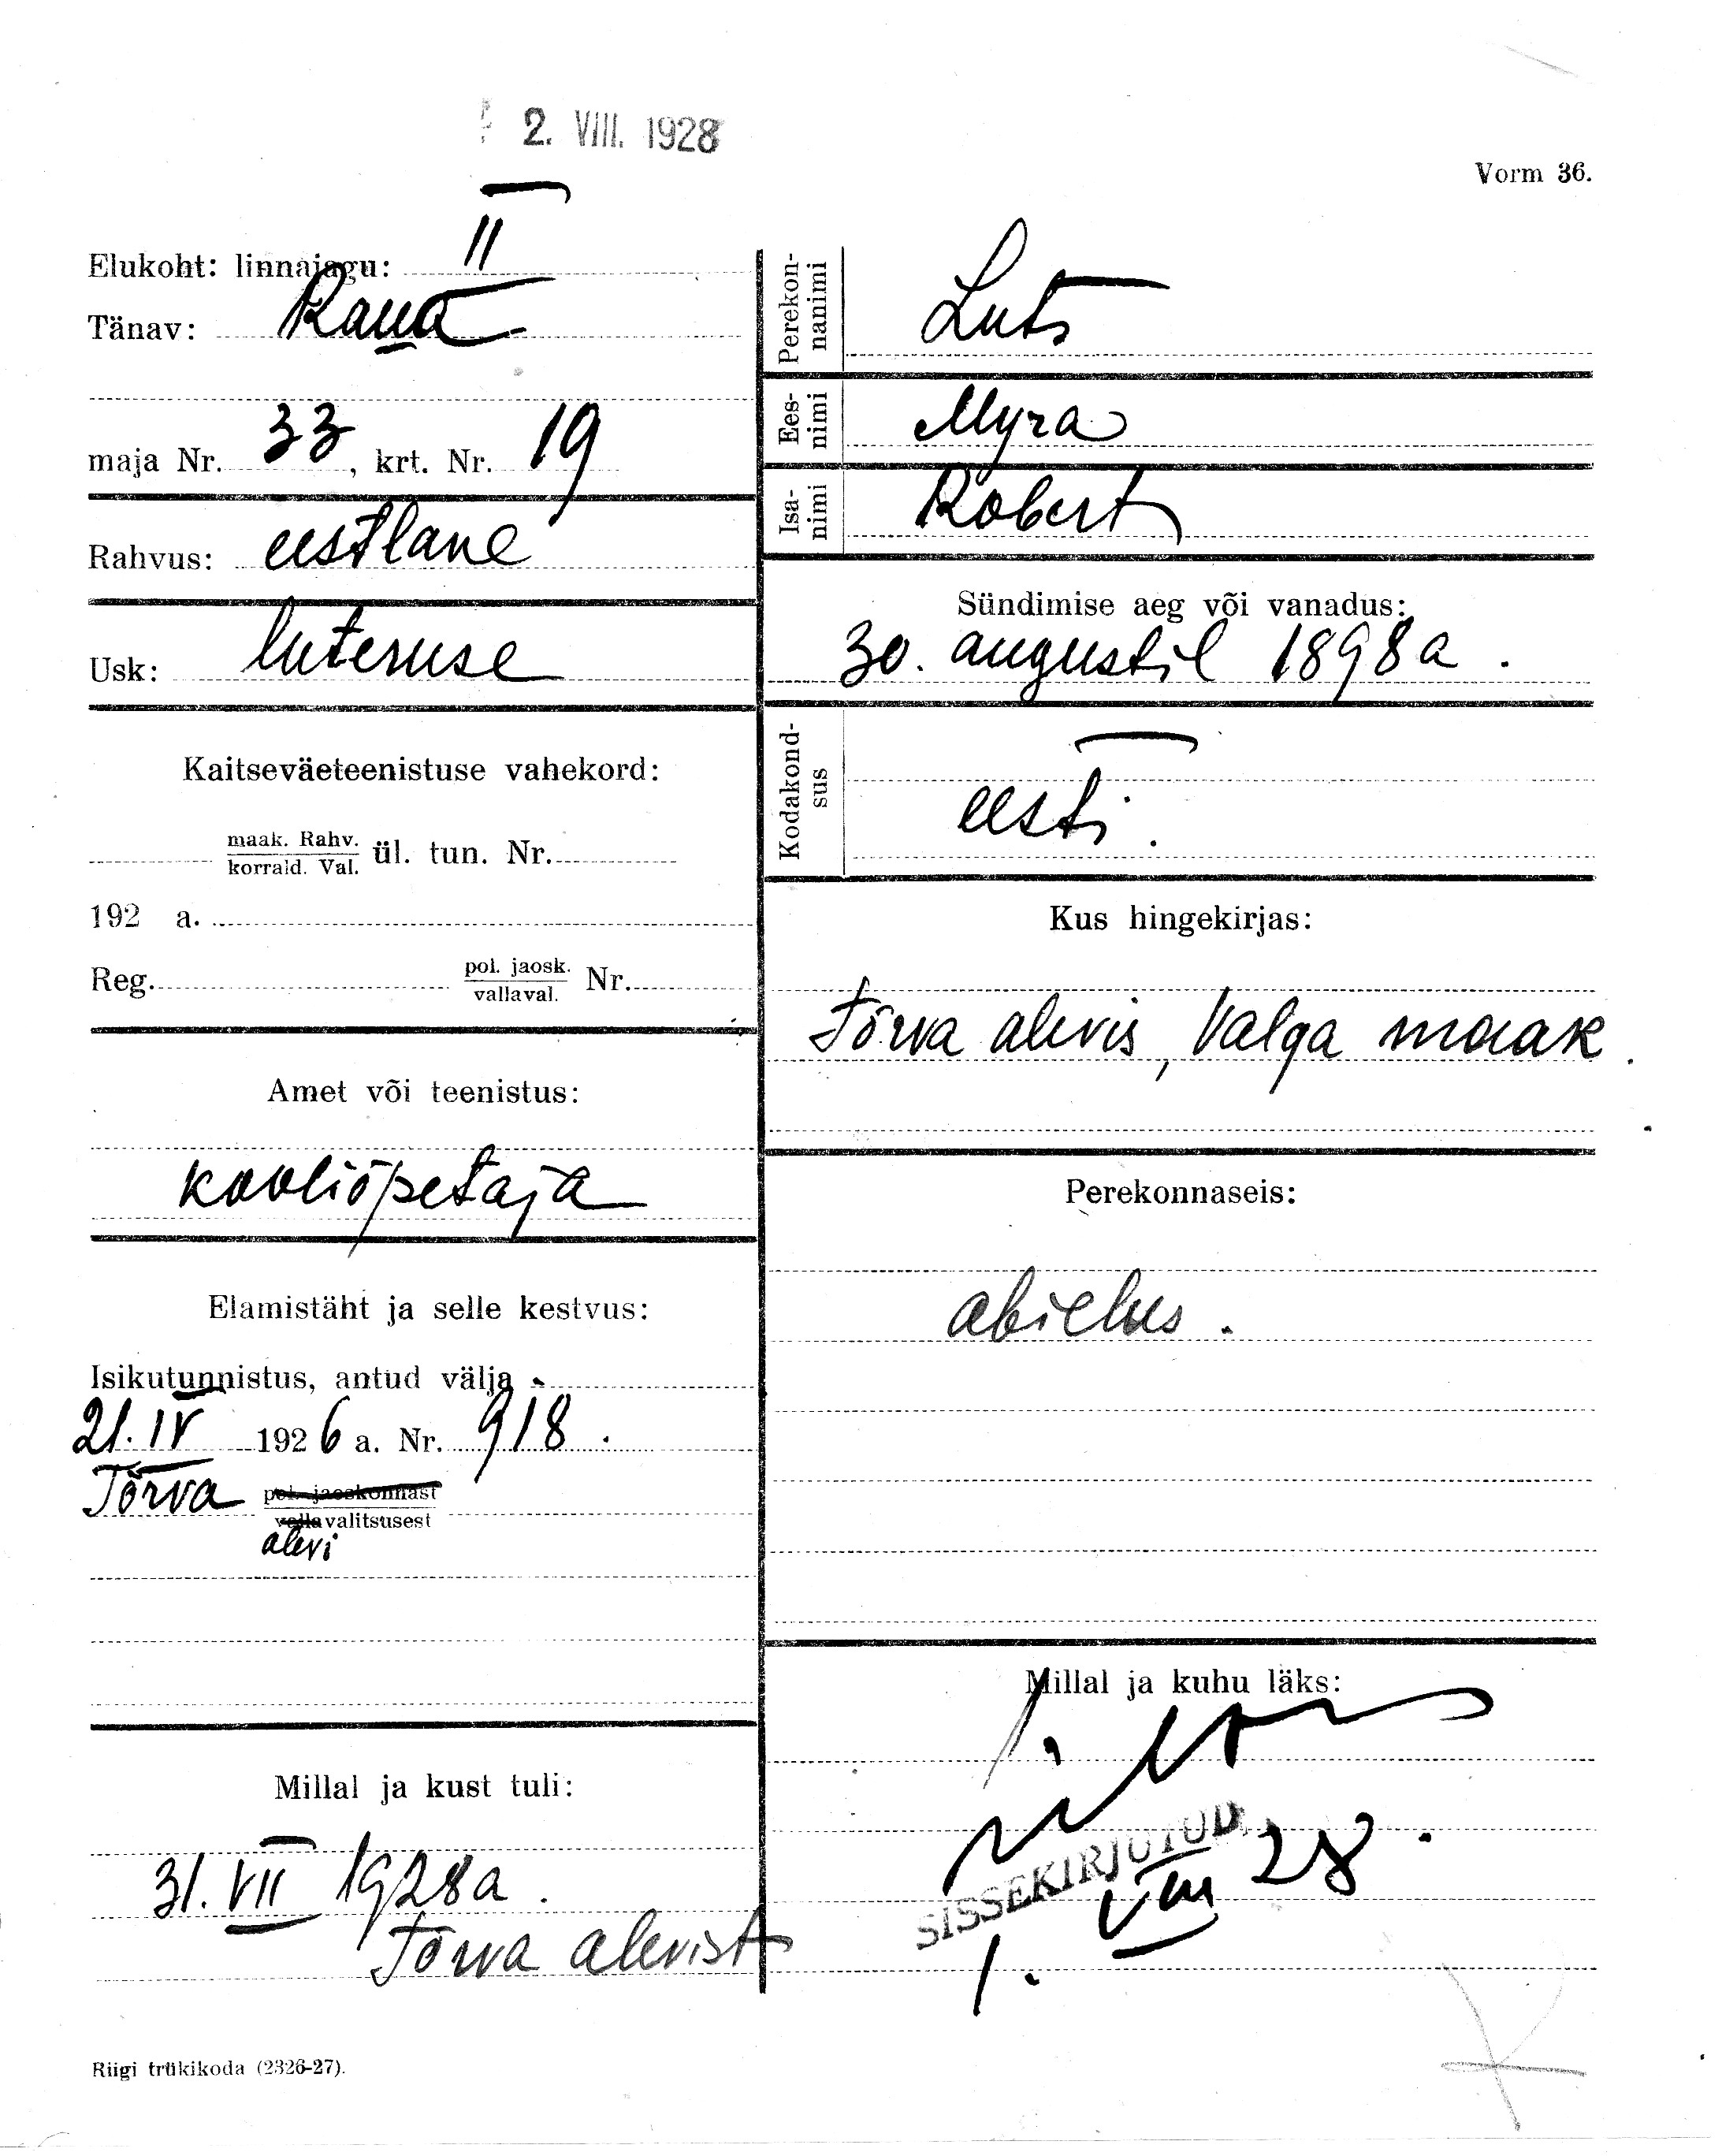 2. VIII. 1928
Vorm 36.
Elukoht: linnajagu: II
Tänav: Raua
maja Nr. 33, krt. Nr. 19
Rahvus: eestlane
Usk: luteruse
Kaitseväeteenistuse vahekord:
maak. Rahv.
korrald. Val. ül. tun. Nr.
192 a.
Reg. pol. jaosk. Nr.
vallaval.
Amet või teenistus:
kooliõpetaja
Elamistäht ja selle kestvus:
Isikutunnistus, antud välja
21. IV 1926 a. Nr. 918.
Tõrva pol. jaoskonnast
vallavalitsusest
alevi
Millal ja kust tuli:
31. VII 1928 a.
Tõrva alevist
Perekonnanimi
Luts
Eesnimi
Myra
Isanimi
Robert
Sündimise aeg või vanadus:
30. augustil 1898 a.
Kodakondsus
eesti.
Kus hingekirjas:
Tõrva alevis, Valga maak.
Perekonnaseis:
abielus.
Millal ja kuhu läks:
SISSEKIRJUTUD.
1. VIII 28.
Riigi trükikoda (2326-27).